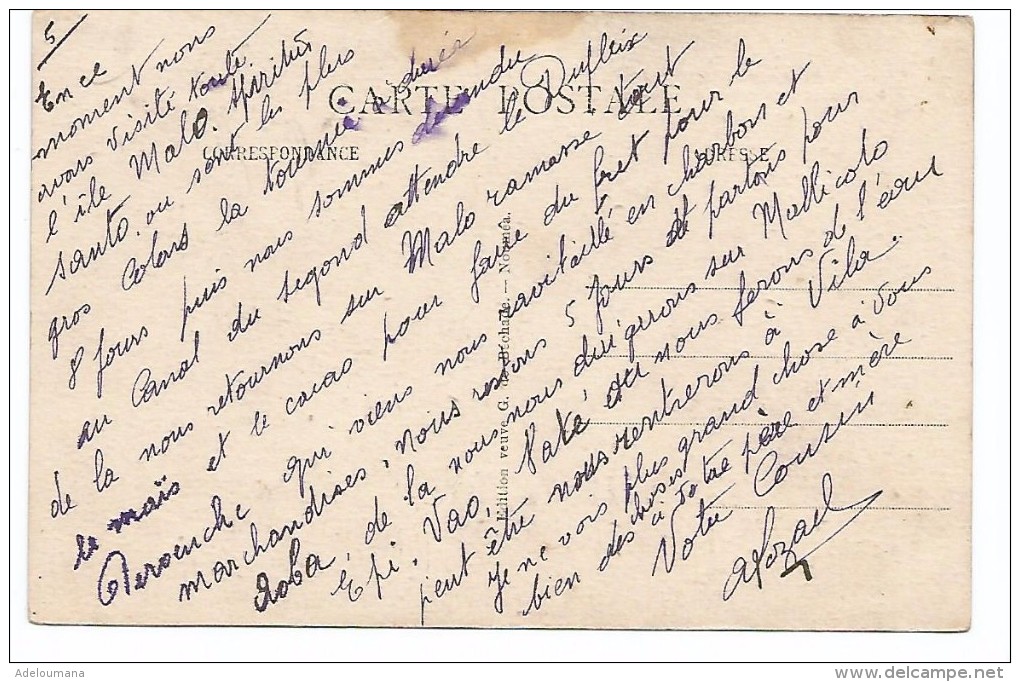 5
En ce
moment nous
avons visité toute
l'île Malo. Spiritus
Santo. ou sont les plus
gros Colons la tournée a durée
8 jours puis nous sommes descendu
au Canal du Segond attendre le Dupleix
de la nous retournons sur Malo ramasse tout
le maïs et le cacao pour faire du fret pour le
qui viens nous ravitaillé en charbons et
marchandises, nous restons 5 jours et partons pour
Aoba, de la nous nous dirigerons sur Mallicolo
Epi. Vao, Vaté, ou nous ferons de l'eau
peut être nous rentrerons à Vila.
Je ne vois plus grand chose à vous
bien des choses à votre père et mère
Votre Cousin
CARTE POSTALE
CORRESPONDANCE
ADRESSE
Edition veuve G. de Béchade. — Nouméa.
Adeloumana
www.delcampe.net